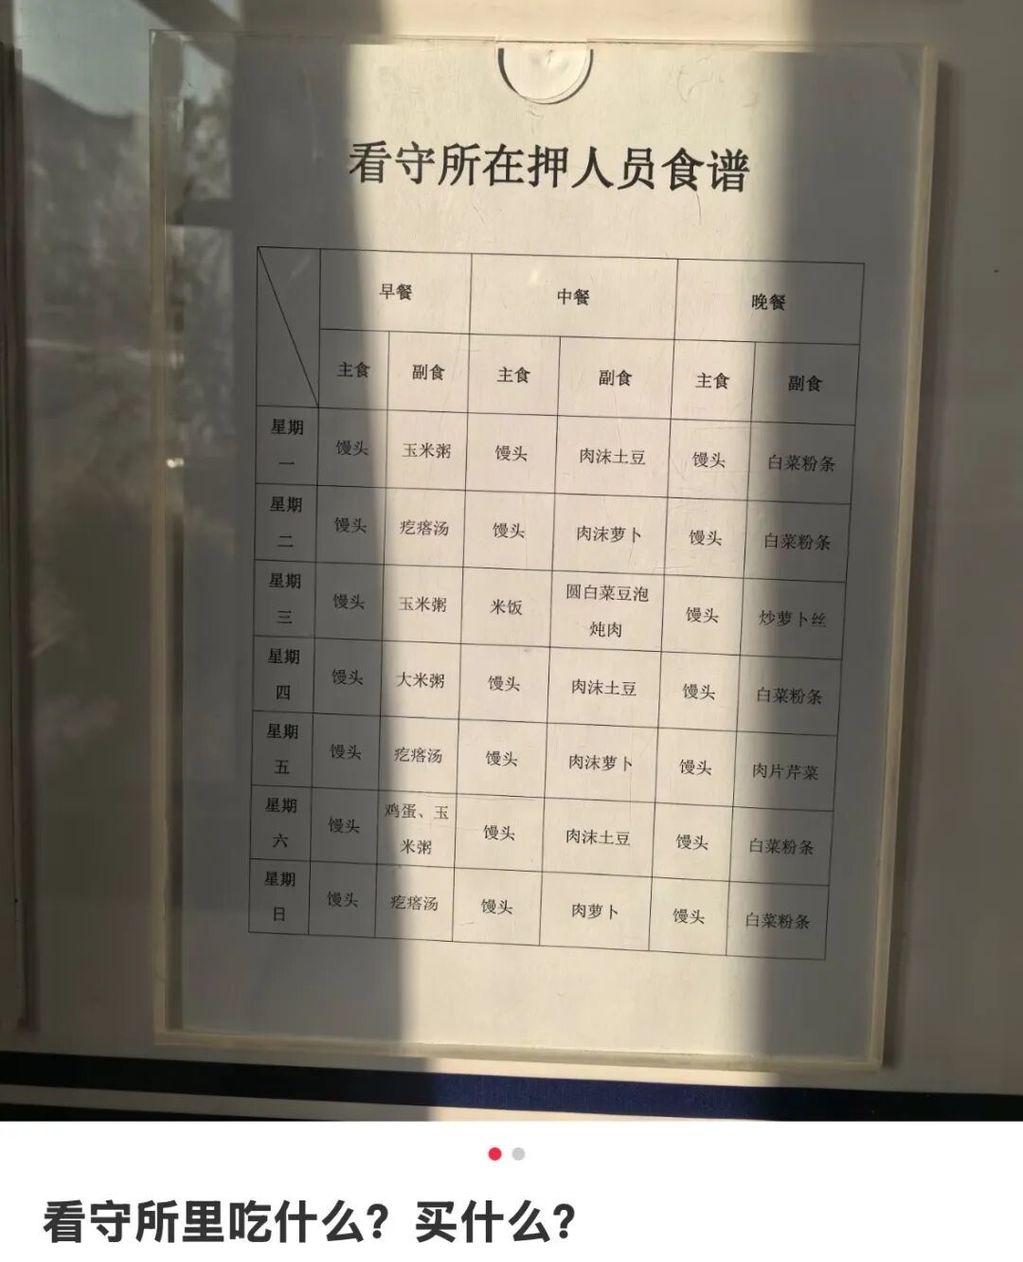 看守所在押人员食谱
早餐 中餐 晚餐
主食 副食 主食 副食 主食 副食
星期一 馒头 玉米粥 馒头 肉沫土豆 馒头 白菜粉条
星期二 馒头 疙瘩汤 馒头 肉沫萝卜 馒头 白菜粉条
星期三 馒头 玉米粥 米饭 圆白菜豆泡炖肉 馒头 炒萝卜丝
星期四 馒头 大米粥 馒头 肉沫土豆 馒头 白菜粉条
星期五 馒头 疙瘩汤 馒头 肉沫萝卜 馒头 肉片芹菜
星期六 馒头 鸡蛋、玉米粥 馒头 肉沫土豆 馒头 白菜粉条
星期日 馒头 疙瘩汤 馒头 肉萝卜 馒头 白菜粉条
看守所里吃什么？买什么？